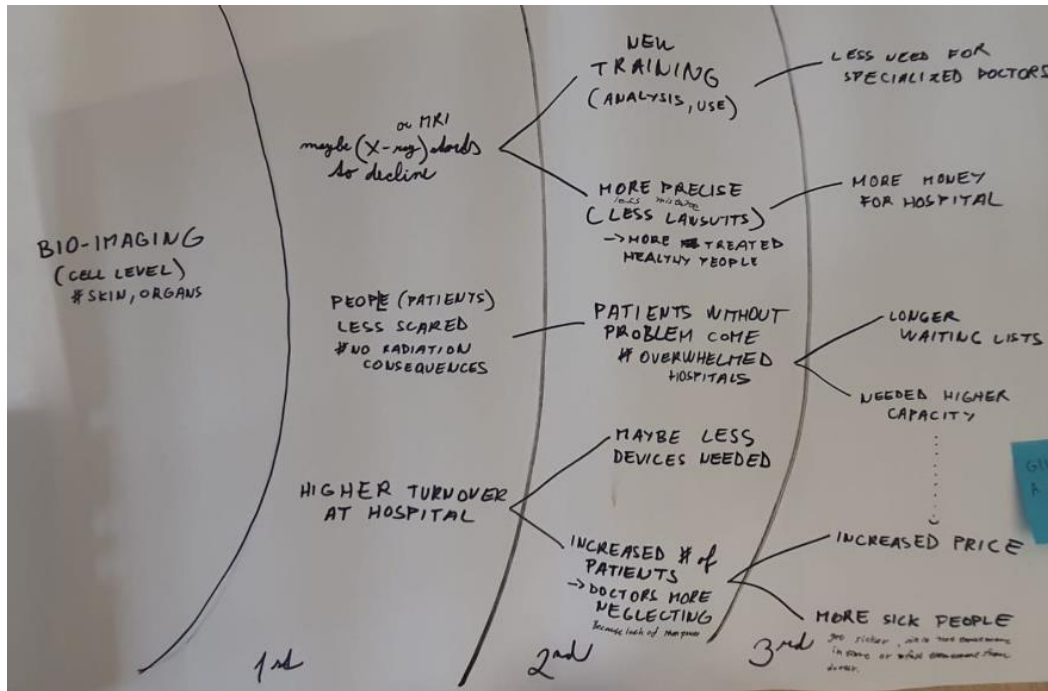 BIO-IMAGING
(CELL LEVEL)
# SKIN, ORGANS
or MRI
maybe (X-ray) starts
to decline
PEOPLE (PATIENTS)
LESS SCARED
# NO RADIATION
CONSEQUENCES
HIGHER TURNOVER
AT HOSPITAL
1rd
NEW
TRAINING
(ANALYSIS, USE)
MORE PRECISE
less mistake
(LESS LAWSUITS)
→ MORE TREATED
HEALTHY PEOPLE
PATIENTS WITHOUT
PROBLEM COME
# OVERWHELMED
HOSPITALS
MAYBE LESS
DEVICES NEEDED
INCREASED # of
PATIENTS
→ DOCTORS MORE
NEGLECTING
Because lack of manpower
2nd
LESS NEED FOR
SPECIALIZED DOCTORS
MORE MONEY
FOR HOSPITAL
LONGER
WAITING LISTS
NEEDED HIGHER
CAPACITY
INCREASED PRICE
MORE SICK PEOPLE
sicker
in some or
3rd